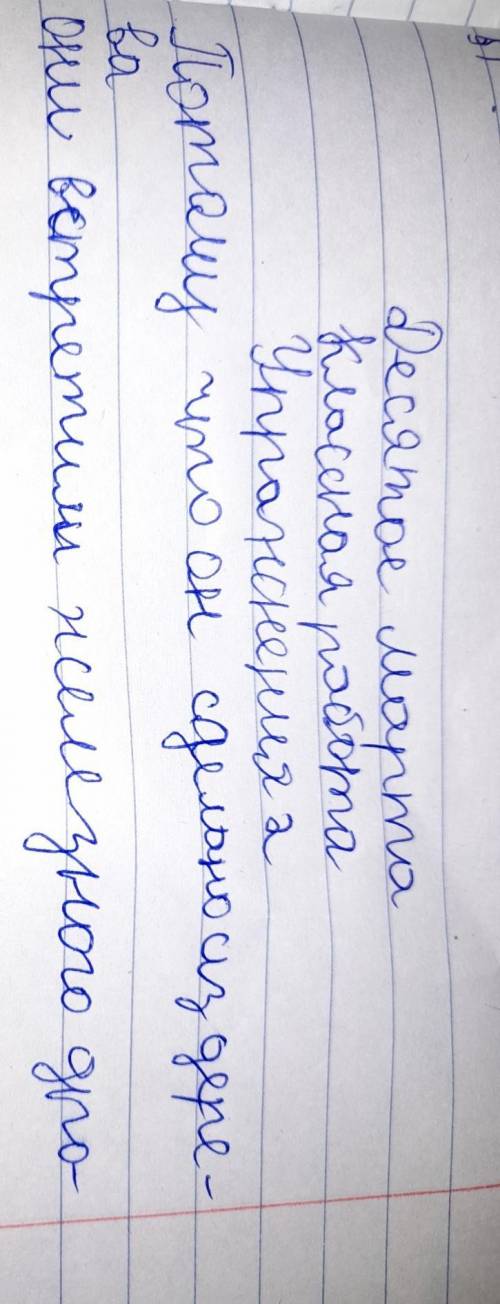 Десятое марта
Классная работа
Упражнения 2
Потому что он сделоно из дере-
ва
они встретили железного дро-